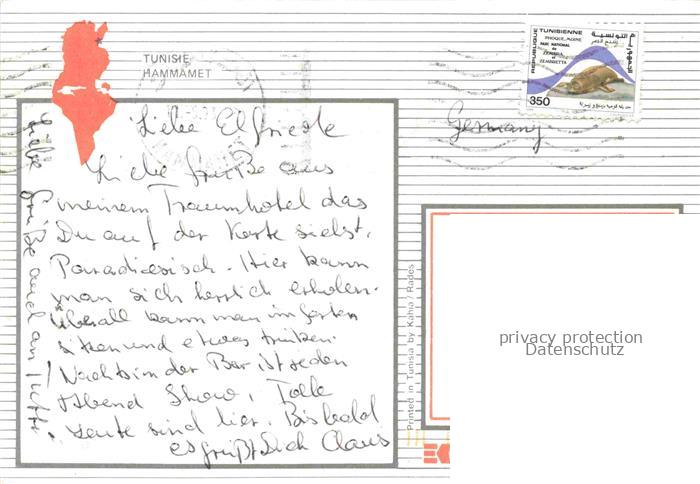 TUNISIE
HAMMAMET
REPUBLIQUE TUNISIENNE
PHOQUE MOINE
PARC NATIONAL
DE ZEMBRA
ZEMBRETTA
350
Germany
Liebe Elfriede
Liebe Grüße aus
meinem Traumhotel das
Du auf der Karte siehst.
Paradiesisch. Hier kann
man sich herrlich erholen.
Überall kann man im Garten
sitzen und etwas trinken.
Nachts in der Bar ist jeden
Abend Show, Tolle
Leute sind hier. Bis bald
es grüßt Dich Claus
Liebe Grüße auch an
Printed in Tunisia by Kahia / Rades
privacy protection
Datenschutz